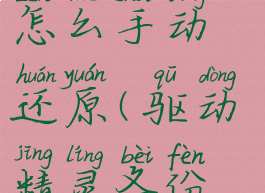 怎么手动
huán yuán qū dòng
还原(驱动
jīng líng bèi fèn
精灵备份